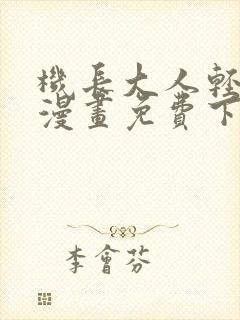 機長大人輕
漫畫免費下
李會芬